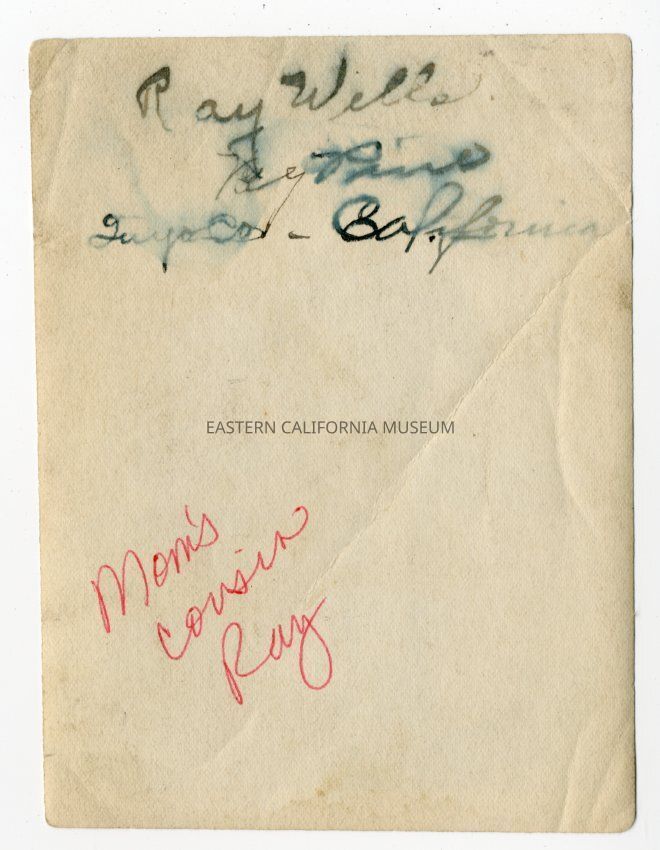 Ray Wells
Pino
Inyo Co. - California
EASTERN CALIFORNIA MUSEUM
Mom's
cousin
Ray